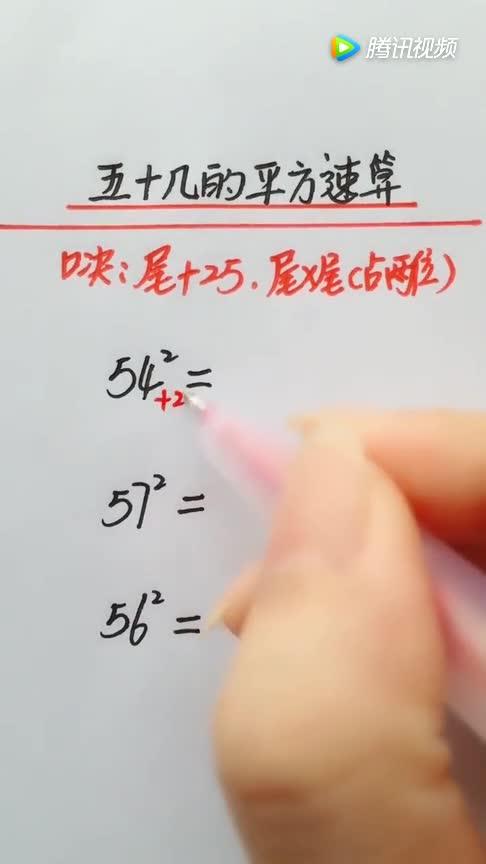 腾讯视频
五十几的平方速算
口决:尾+25.尾×尾(占两位)
54²=
+2
57²=
56²=